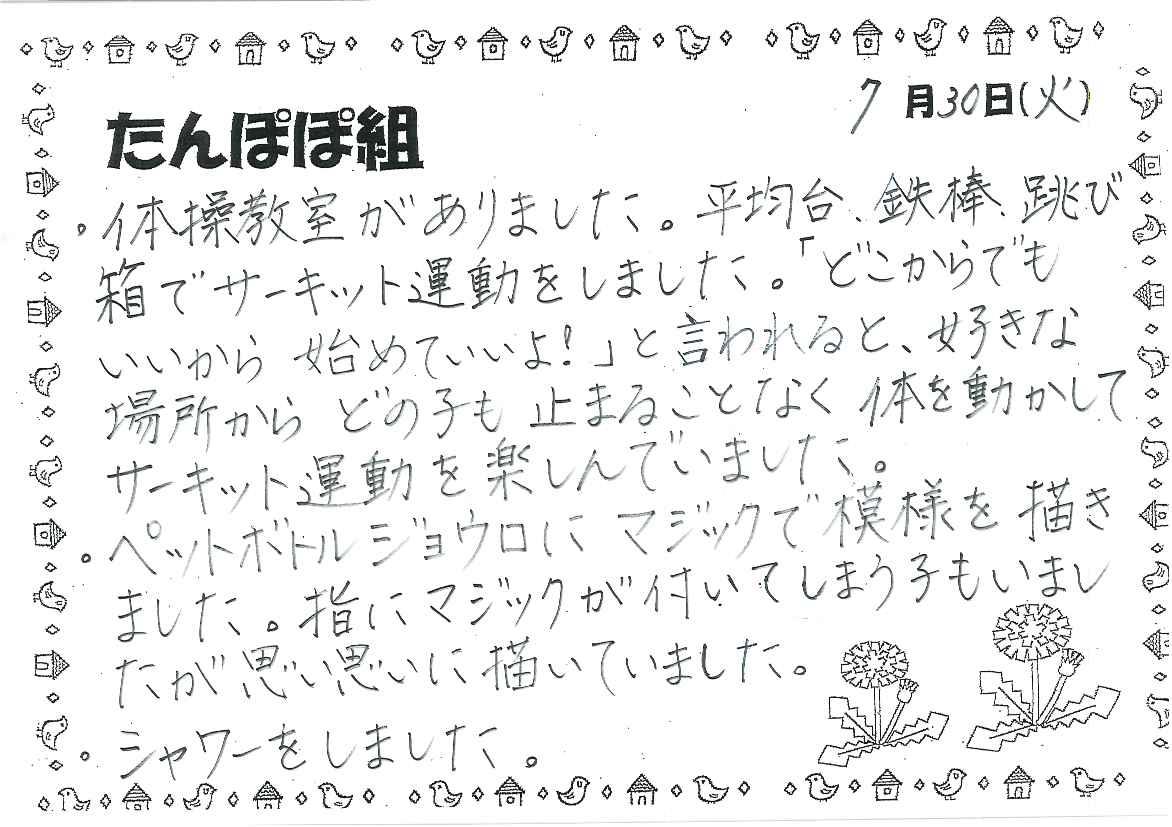 7月30日(火)
たんぽぽ組
・体操教室がありました。平均台、鉄棒、跳び
箱でサーキット運動をしました。「どこからでも
いいから 始めていいよ!」と言われると、好きな
場所から どの子も 止まることなく 体を動かして
サーキット運動を楽しんでいました。
・ペットボトルジョウロに マジックで模様を 描き
ました。指にマジックが付いてしまう子もいまし
たが思い思いに描いていました。
・シャワーをしました。